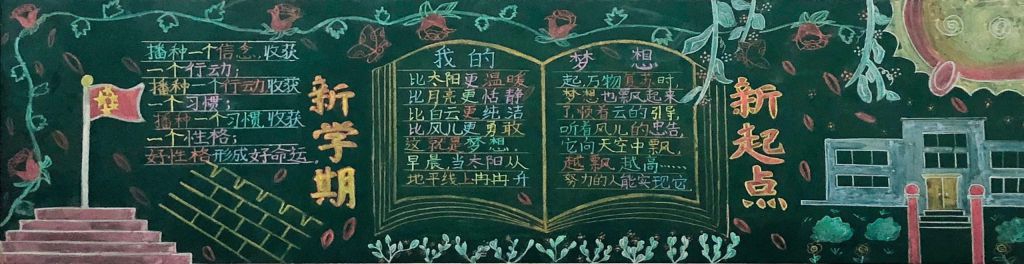 播种一个信念,收获
一个行动;
播种一个行动收获
一个习惯;
播种一个习惯,收获
一个性格;
好性格形成好命运。
新学期
我的
比太阳更温暖
比月亮更恬静
比白云更纯洁
比风儿更勇敢
这就是梦想
早晨,当太阳从
地平线上冉冉升
梦想
起,万物复苏时,
梦想也飘起来
了,顺着云的引导,
听着风儿的忠告,
它向天空中飘,
越飘越高……
努力的人能实现它
新起点